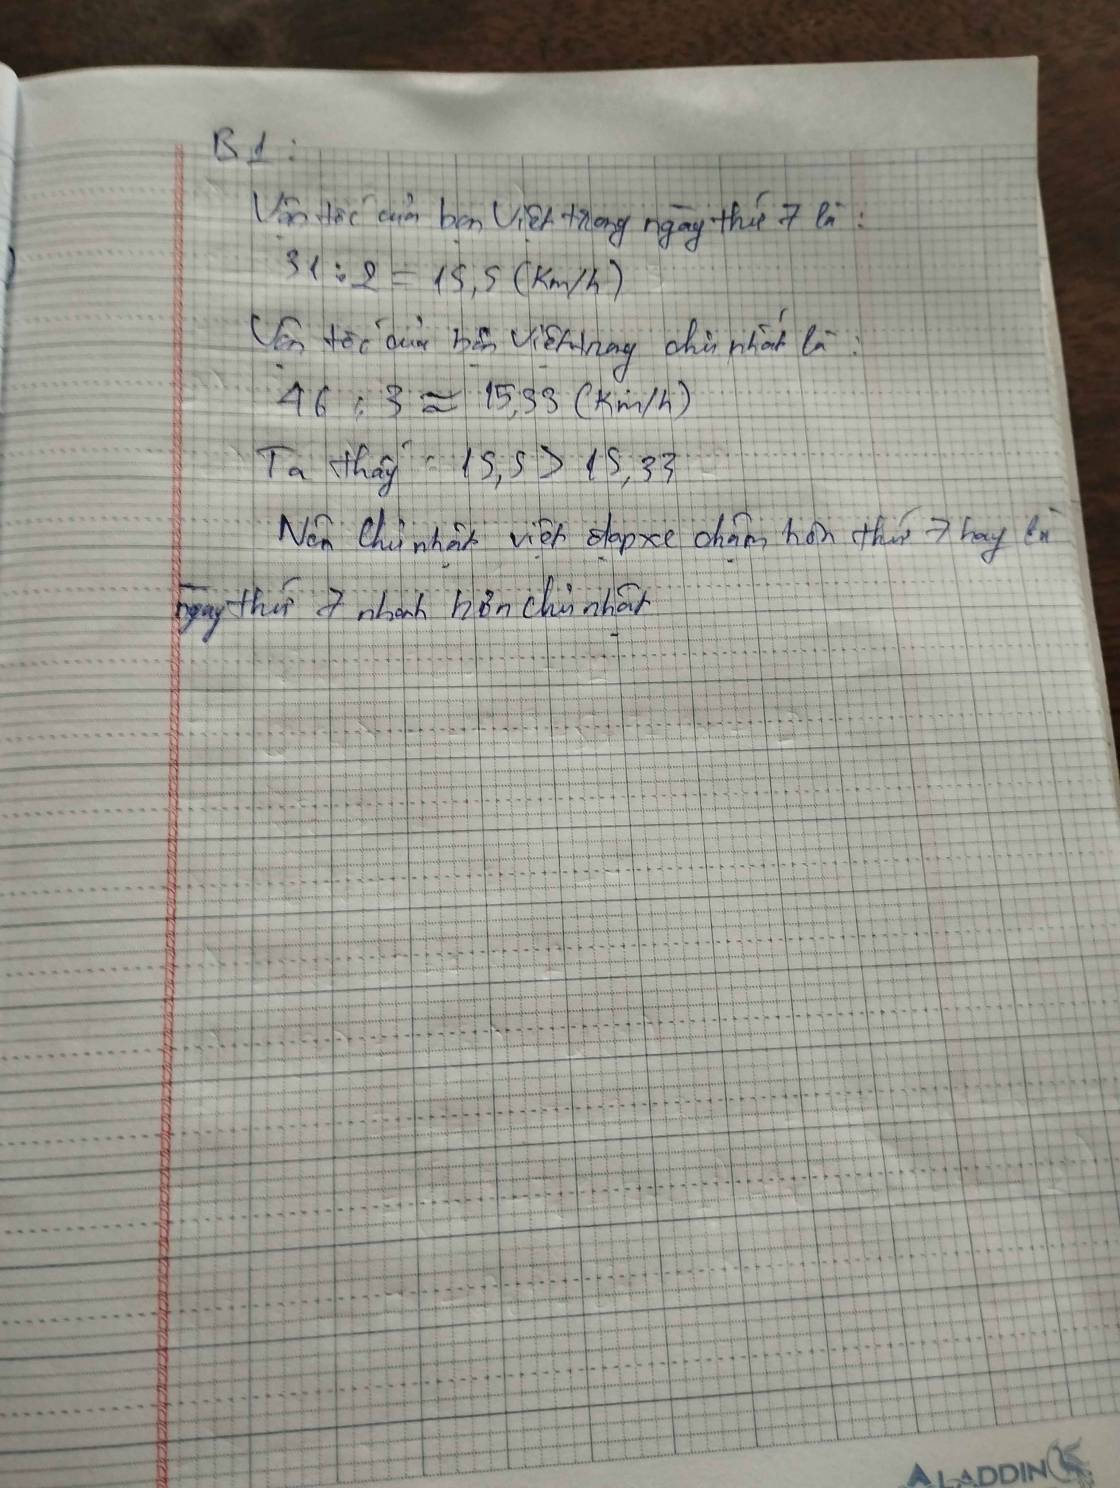 B1:
Vận tốc của bạn Việt trong ngày thứ 7 là:
31 : 2 = 15,5 (Km/h)
Vận tốc của bạn Việt trong chủ nhật là:
46 : 3 ≈ 15,33 (Km/h)
Ta thấy: 15,5 > 15,33
Nên Chủ nhật việt đạp xe chậm hơn thứ 7 hay là
ngày thứ 7 nhanh hơn chủ nhật
ALADDIN